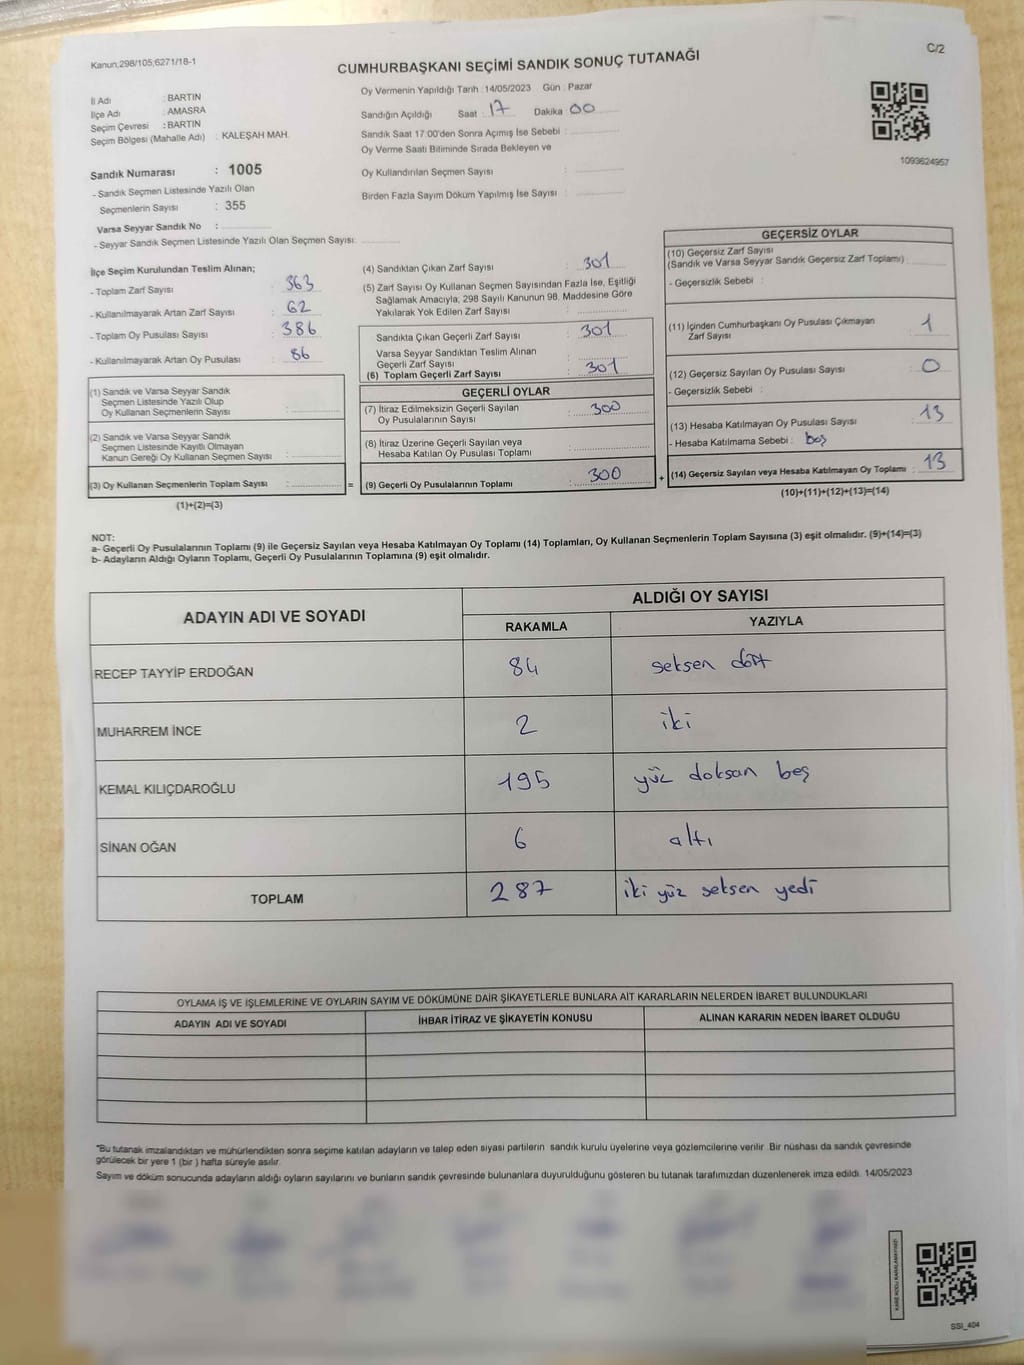 Kanun,298/105;6271/18-1
C/2
CUMHURBAŞKANI SEÇİMİ SANDIK SONUÇ TUTANAĞI
İl Adı : BARTIN
İlçe Adı : AMASRA
Seçim Çevresi : BARTIN
Seçim Bölgesi (Mahalle Adı) : KALEŞAH MAH.
Sandık Numarası : 1005
- Sandık Seçmen Listesinde Yazılı Olan
Seçmenlerin Sayısı : 355
Varsa Seyyar Sandık No :
- Seyyar Sandık Seçmen Listesinde Yazılı Olan Seçmen Sayısı:
Oy Vermenin Yapıldığı Tarih : 14/05/2023 Gün : Pazar
Sandığın Açıldığı Saat : 17 Dakika 00
Sandık Saat 17:00'den Sonra Açımış İse Sebebi :
Oy Verme Saati Bitiminde Sırada Bekleyen ve
Oy Kullandırılan Seçmen Sayısı :
Birden Fazla Sayım Döküm Yapılmış İse Sayısı :
1093624957
İlçe Seçim Kurulundan Teslim Alınan;
- Toplam Zarf Sayısı : 363
- Kullanılmayarak Artan Zarf Sayısı : 62
- Toplam Oy Pusulası Sayısı : 386
- Kullanılmayarak Artan Oy Pusulası : 86
(1) Sandık ve Varsa Seyyar Sandık
Seçmen Listesinde Yazılı Olup
Oy Kullanan Seçmenlerin Sayısı :
(2) Sandık ve Varsa Seyyar Sandık
Seçmen Listesinde Kayıtlı Olmayan
Kanun Gereği Oy Kullanan Seçmen Sayısı :
(3) Oy Kullanan Seçmenlerin Toplam Sayısı : =
(1)+(2)=(3)
(4) Sandıktan Çıkan Zarf Sayısı : 301
(5) Zarf Sayısı Oy Kullanan Seçmen Sayısından Fazla İse, Eşitliği
Sağlamak Amacıyla; 298 Sayılı Kanunun 98. Maddesine Göre
Yakılarak Yok Edilen Zarf Sayısı :
Sandıkta Çıkan Geçerli Zarf Sayısı : 301
Varsa Seyyar Sandıktan Teslim Alınan
Geçerli Zarf Sayısı :
(6) Toplam Geçerli Zarf Sayısı : 301
GEÇERLİ OYLAR
(7) İtiraz Edilmeksizin Geçerli Sayılan
Oy Pusulalarının Sayısı : 300
(8) İtiraz Üzerine Geçerli Sayılan veya
Hesaba Katılan Oy Pusulası Toplamı :
(9) Geçerli Oy Pusulalarının Toplamı : 300 +
GEÇERSİZ OYLAR
(10) Geçersiz Zarf Sayısı
(Sandık ve Varsa Seyyar Sandık Geçersiz Zarf Toplamı) :
- Geçersizlik Sebebi :
(11) İçinden Cumhurbaşkanı Oy Pusulası Çıkmayan
Zarf Sayısı : 1
(12) Geçersiz Sayılan Oy Pusulası Sayısı : 0
- Geçersizlik Sebebi :
(13) Hesaba Katılmayan Oy Pusulası Sayısı : 13
- Hesaba Katılmama Sebebi : boş
(14) Geçersiz Sayılan veya Hesaba Katılmayan Oy Toplamı : 13
(10)+(11)+(12)+(13)=(14)
NOT:
a- Geçerli Oy Pusulalarının Toplamı (9) ile Geçersiz Sayılan veya Hesaba Katılmayan Oy Toplamı (14) Toplamları, Oy Kullanan Seçmenlerin Toplam Sayısına (3) eşit olmalıdır. (9)+(14)=(3)
b- Adayların Aldığı Oyların Toplamı, Geçerli Oy Pusulalarının Toplamına (9) eşit olmalıdır.
ADAYIN ADI VE SOYADI ALDIĞI OY SAYISI
RAKAMLA YAZIYLA
RECEP TAYYİP ERDOĞAN 84 seksen dört
MUHARREM İNCE 2 iki
KEMAL KILIÇDAROĞLU 195 yüz doksan beş
SİNAN OĞAN 6 altı
TOPLAM 287 iki yüz seksen yedi
OYLAMA İŞ VE İŞLEMLERİNE VE OYLARIN SAYIM VE DÖKÜMÜNE DAİR ŞİKAYETLERLE BUNLARA AİT KARARLARIN NELERDEN İBARET BULUNDUKLARI
ADAYIN ADI VE SOYADI İHBAR İTİRAZ VE ŞİKAYETİN KONUSU ALINAN KARARIN NEDEN İBARET OLDUĞU
"Bu tutanak imzalandıktan ve mühürlendikten sonra seçime katılan adayların ve talep eden siyasi partilerin sandık kurulu üyelerine veya gözlemcilerine verilir. Bir nüshası da sandık çevresinde
görülecek bir yere 1 (bir ) hafta süreyle asılır.
Sayım ve döküm sonucunda adayların aldığı oyların sayılarını ve bunların sandık çevresinde bulunanlara duyurulduğunu gösteren bu tutanak tarafımızdan düzenlenerek imza edildi. 14/05/2023
KARE KODU KARALAMAYINIZ!
SSI_404